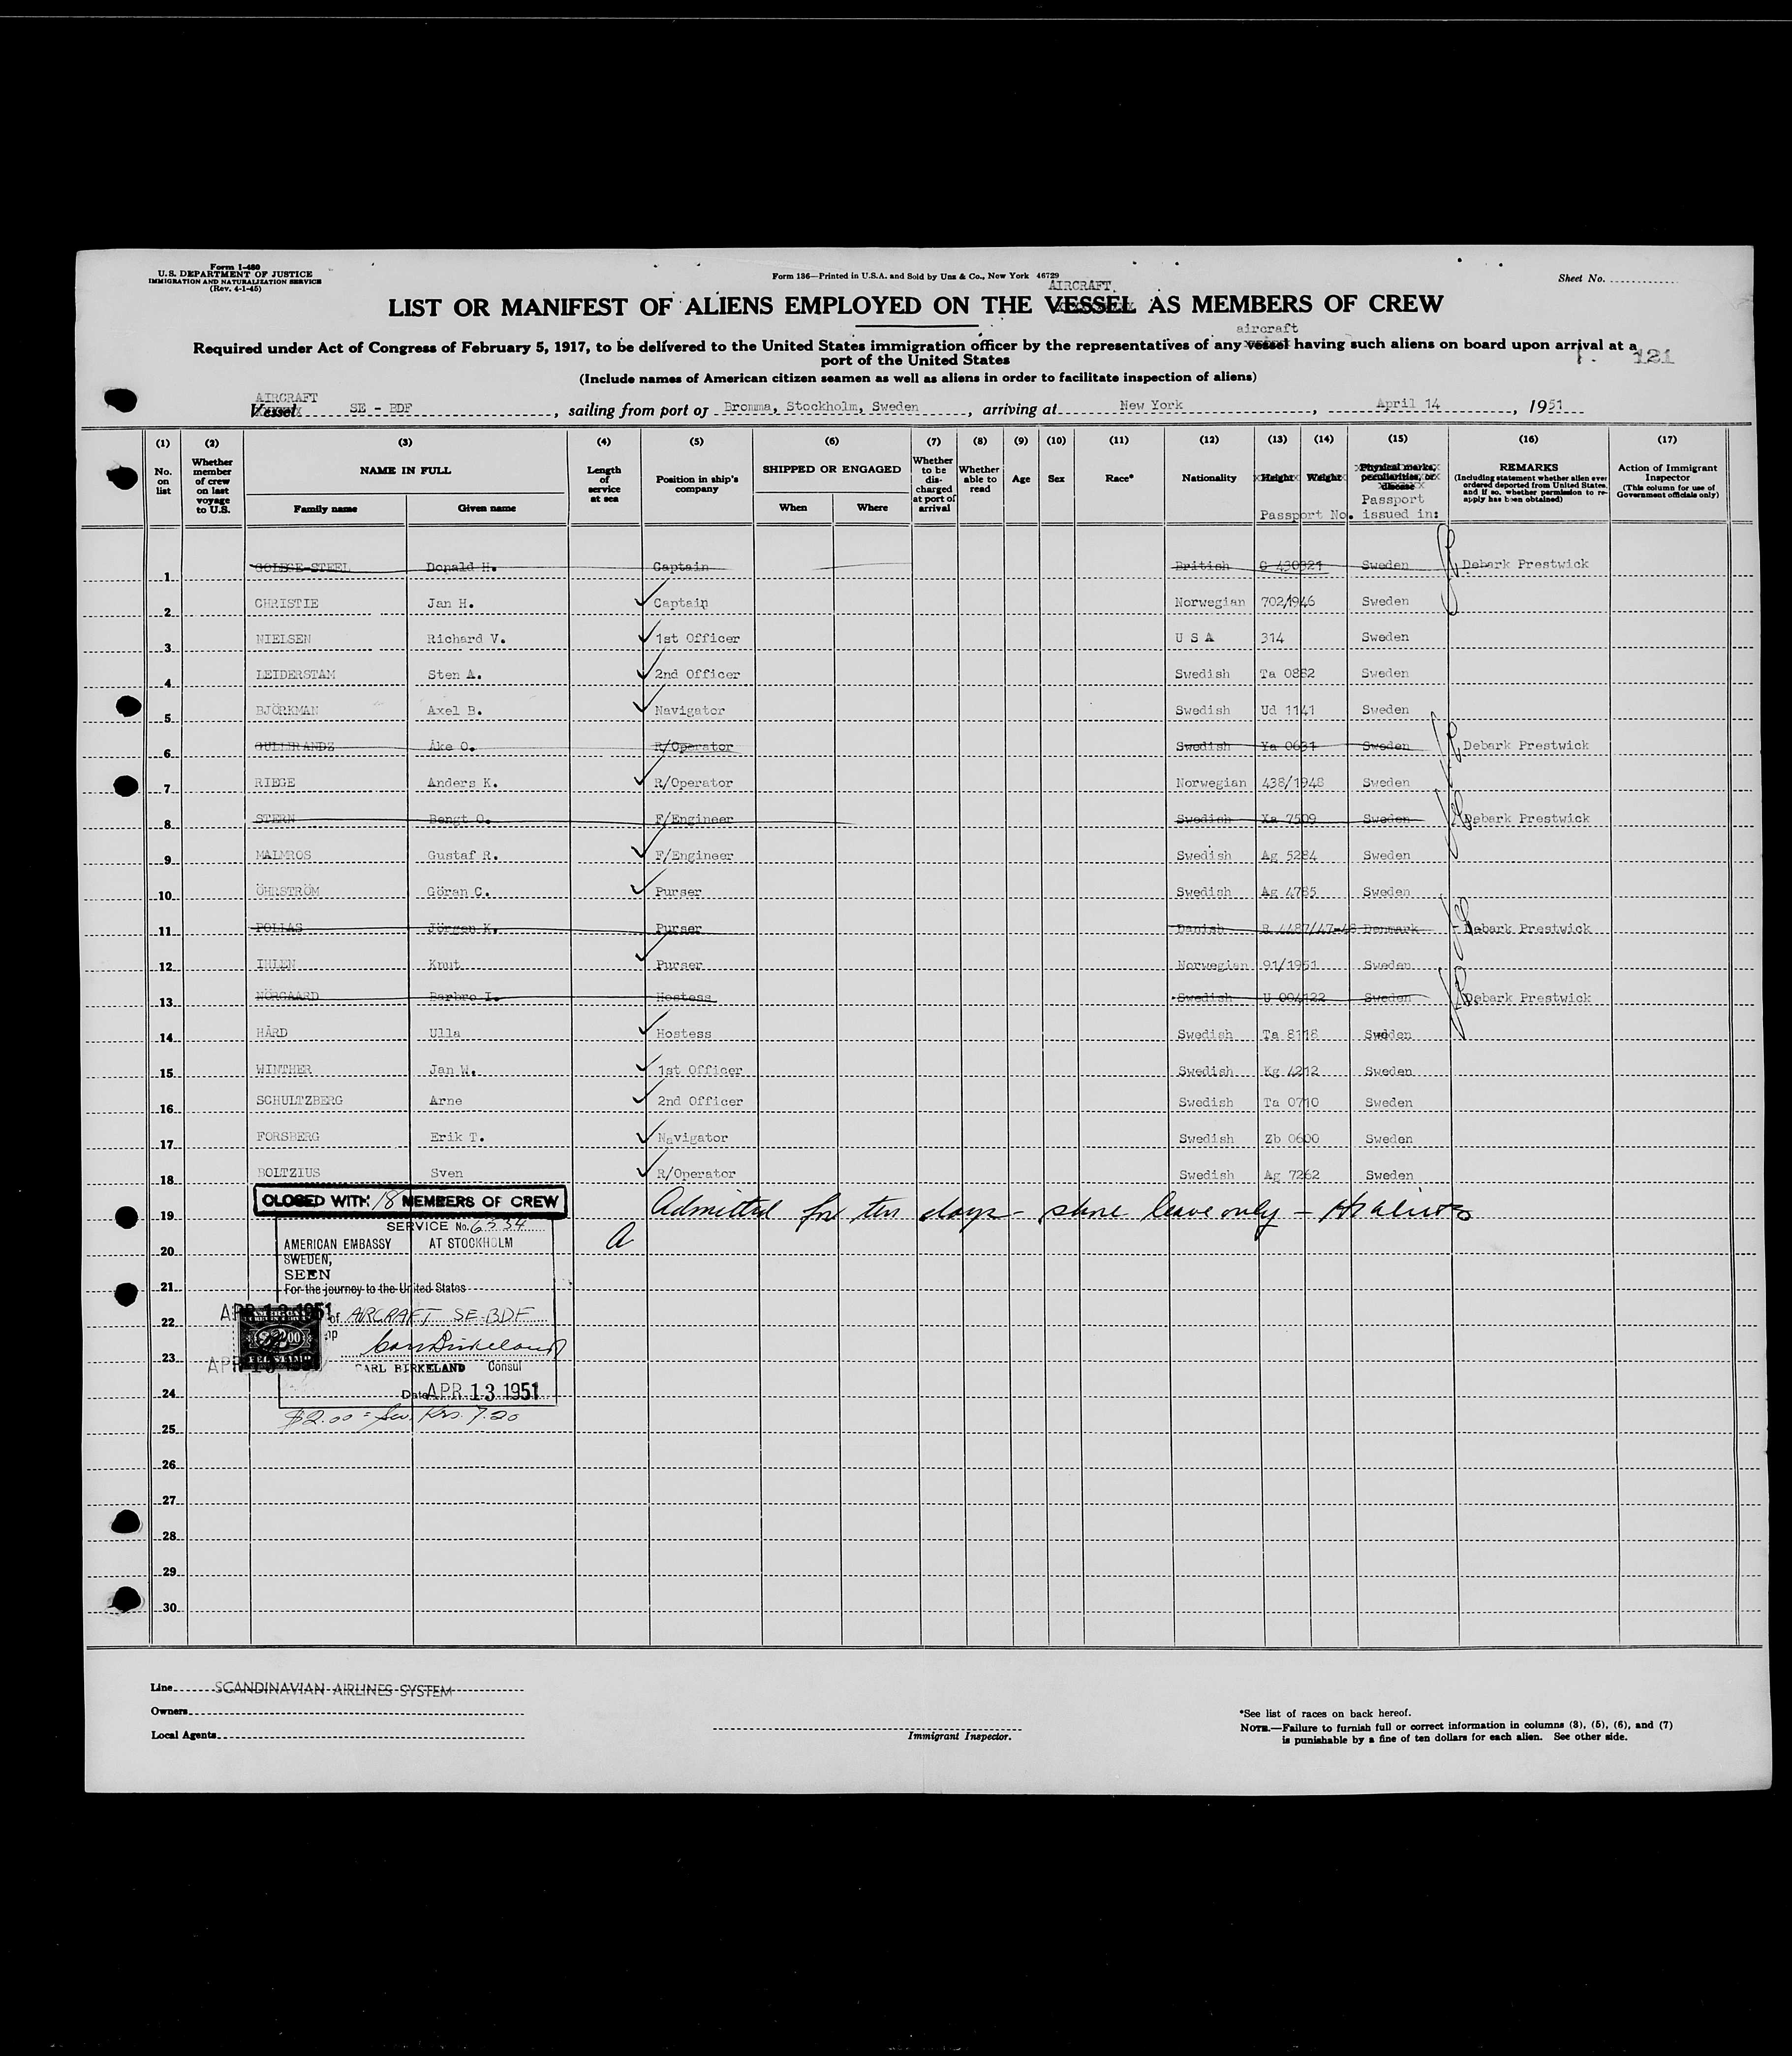 Form I-480
U.S. DEPARTMENT OF JUSTICE
IMMIGRATION AND NATURALIZATION SERVICE
(Rev. 4-1-45)
Form 136—Printed in U.S.A. and Sold by Unz & Co., New York 46729
Sheet No.
AIRCRAFT
LIST OR MANIFEST OF ALIENS EMPLOYED ON THE VESSEL AS MEMBERS OF CREW
aircraft
Required under Act of Congress of February 5, 1917, to be delivered to the United States immigration officer by the representatives of any vessel having such aliens on board upon arrival at a
port of the United States
121
(Include names of American citizen seamen as well as aliens in order to facilitate inspection of aliens)
AIRCRAFT
Vessel SE - BDF, sailing from port of Bromma, Stockholm, Sweden, arriving at New York, April 14, 1951
(1) (2) (3) (4) (5) (6) (7) (8) (9) (10) (11) (12) (13) (14) (15) (16) (17)
No. on list
Whether member of crew on last voyage to U.S.
NAME IN FULL
Family name Given name
Length of service at sea
Position in ship's company
SHIPPED OR ENGAGED
When Where
Whether to be discharged at port of arrival
Whether able to read
Age
Sex
Race*
Nationality
Height Weight
Passport No.
Physical marks, peculiarities, or disease
Passport issued in:
REMARKS
(Including statement whether alien ever ordered deported from United States, and if so, whether permission to re-apply has been obtained)
Action of Immigrant Inspector
(This column for use of Government officials only)
1 Donald H. Captain British G 430321 Sweden Debark Prestwick
2 CHRISTIE Jan H. Captain Norwegian 702/1946 Sweden
3 NIELSEN Richard V. 1st Officer U S A 314 Sweden
4 LEIDERSTAM Sten A. 2nd Officer Swedish Ta 0882 Sweden
5 BJÖRKMAN Axel B. Navigator Swedish Ud 1141 Sweden
6 GULLERANDZ Åke O. R/Operator Swedish Ya 0631 Sweden Debark Prestwick
7 RIEGE Anders K. R/Operator Norwegian 438/1948 Sweden
8 STERN Bengt O. F/Engineer Swedish Xa 7509 Sweden Debark Prestwick
9 MALMROS Gustaf R. F/Engineer Swedish Ag 5284 Sweden
10 ÖHRSTRÖM Göran C. Purser Swedish Ag 4785 Sweden
11 POLLAS Jörgen K. Purser Danish R 4487/47-48 Denmark Debark Prestwick
12 IHLEN Knut Purser Norwegian 91/1951 Sweden
13 NÖRGAARD Barbro I. Hostess Swedish U 004122 Sweden Debark Prestwick
14 HÅRD Ulla Hostess Swedish Ta 8118 Sweden
15 WINTHER Jan W. 1st Officer Swedish Kg 4212 Sweden
16 SCHULTZBERG Arne 2nd Officer Swedish Ta 0710 Sweden
17 FORSBERG Erik T. Navigator Swedish Zb 0600 Sweden
18 BOLTZIUS Sven R/Operator Swedish Ag 7262 Sweden
CLOSED WITH 18 MEMBERS OF CREW
19 Admitted for ten days - shore leave only -
SERVICE No. 6334
AMERICAN EMBASSY AT STOCKHOLM
20 a
SWEDEN,
SEEN
21
For the journey to the United States
APR 13 1951
22 of AIRCRAFT SE-BDF
23
CARL BIRKELAND Consul
24 Date APR 13 1951
$2.00 = Sw. Krs. 7.20
25
26
27
28
29
30
Line SCANDINAVIAN AIRLINES SYSTEM
Owners
Local Agents
Immigrant Inspector.
*See list of races on back hereof.
NOTE.—Failure to furnish full or correct information in columns (3), (5), (6), and (7)
is punishable by a fine of ten dollars for each alien. See other side.